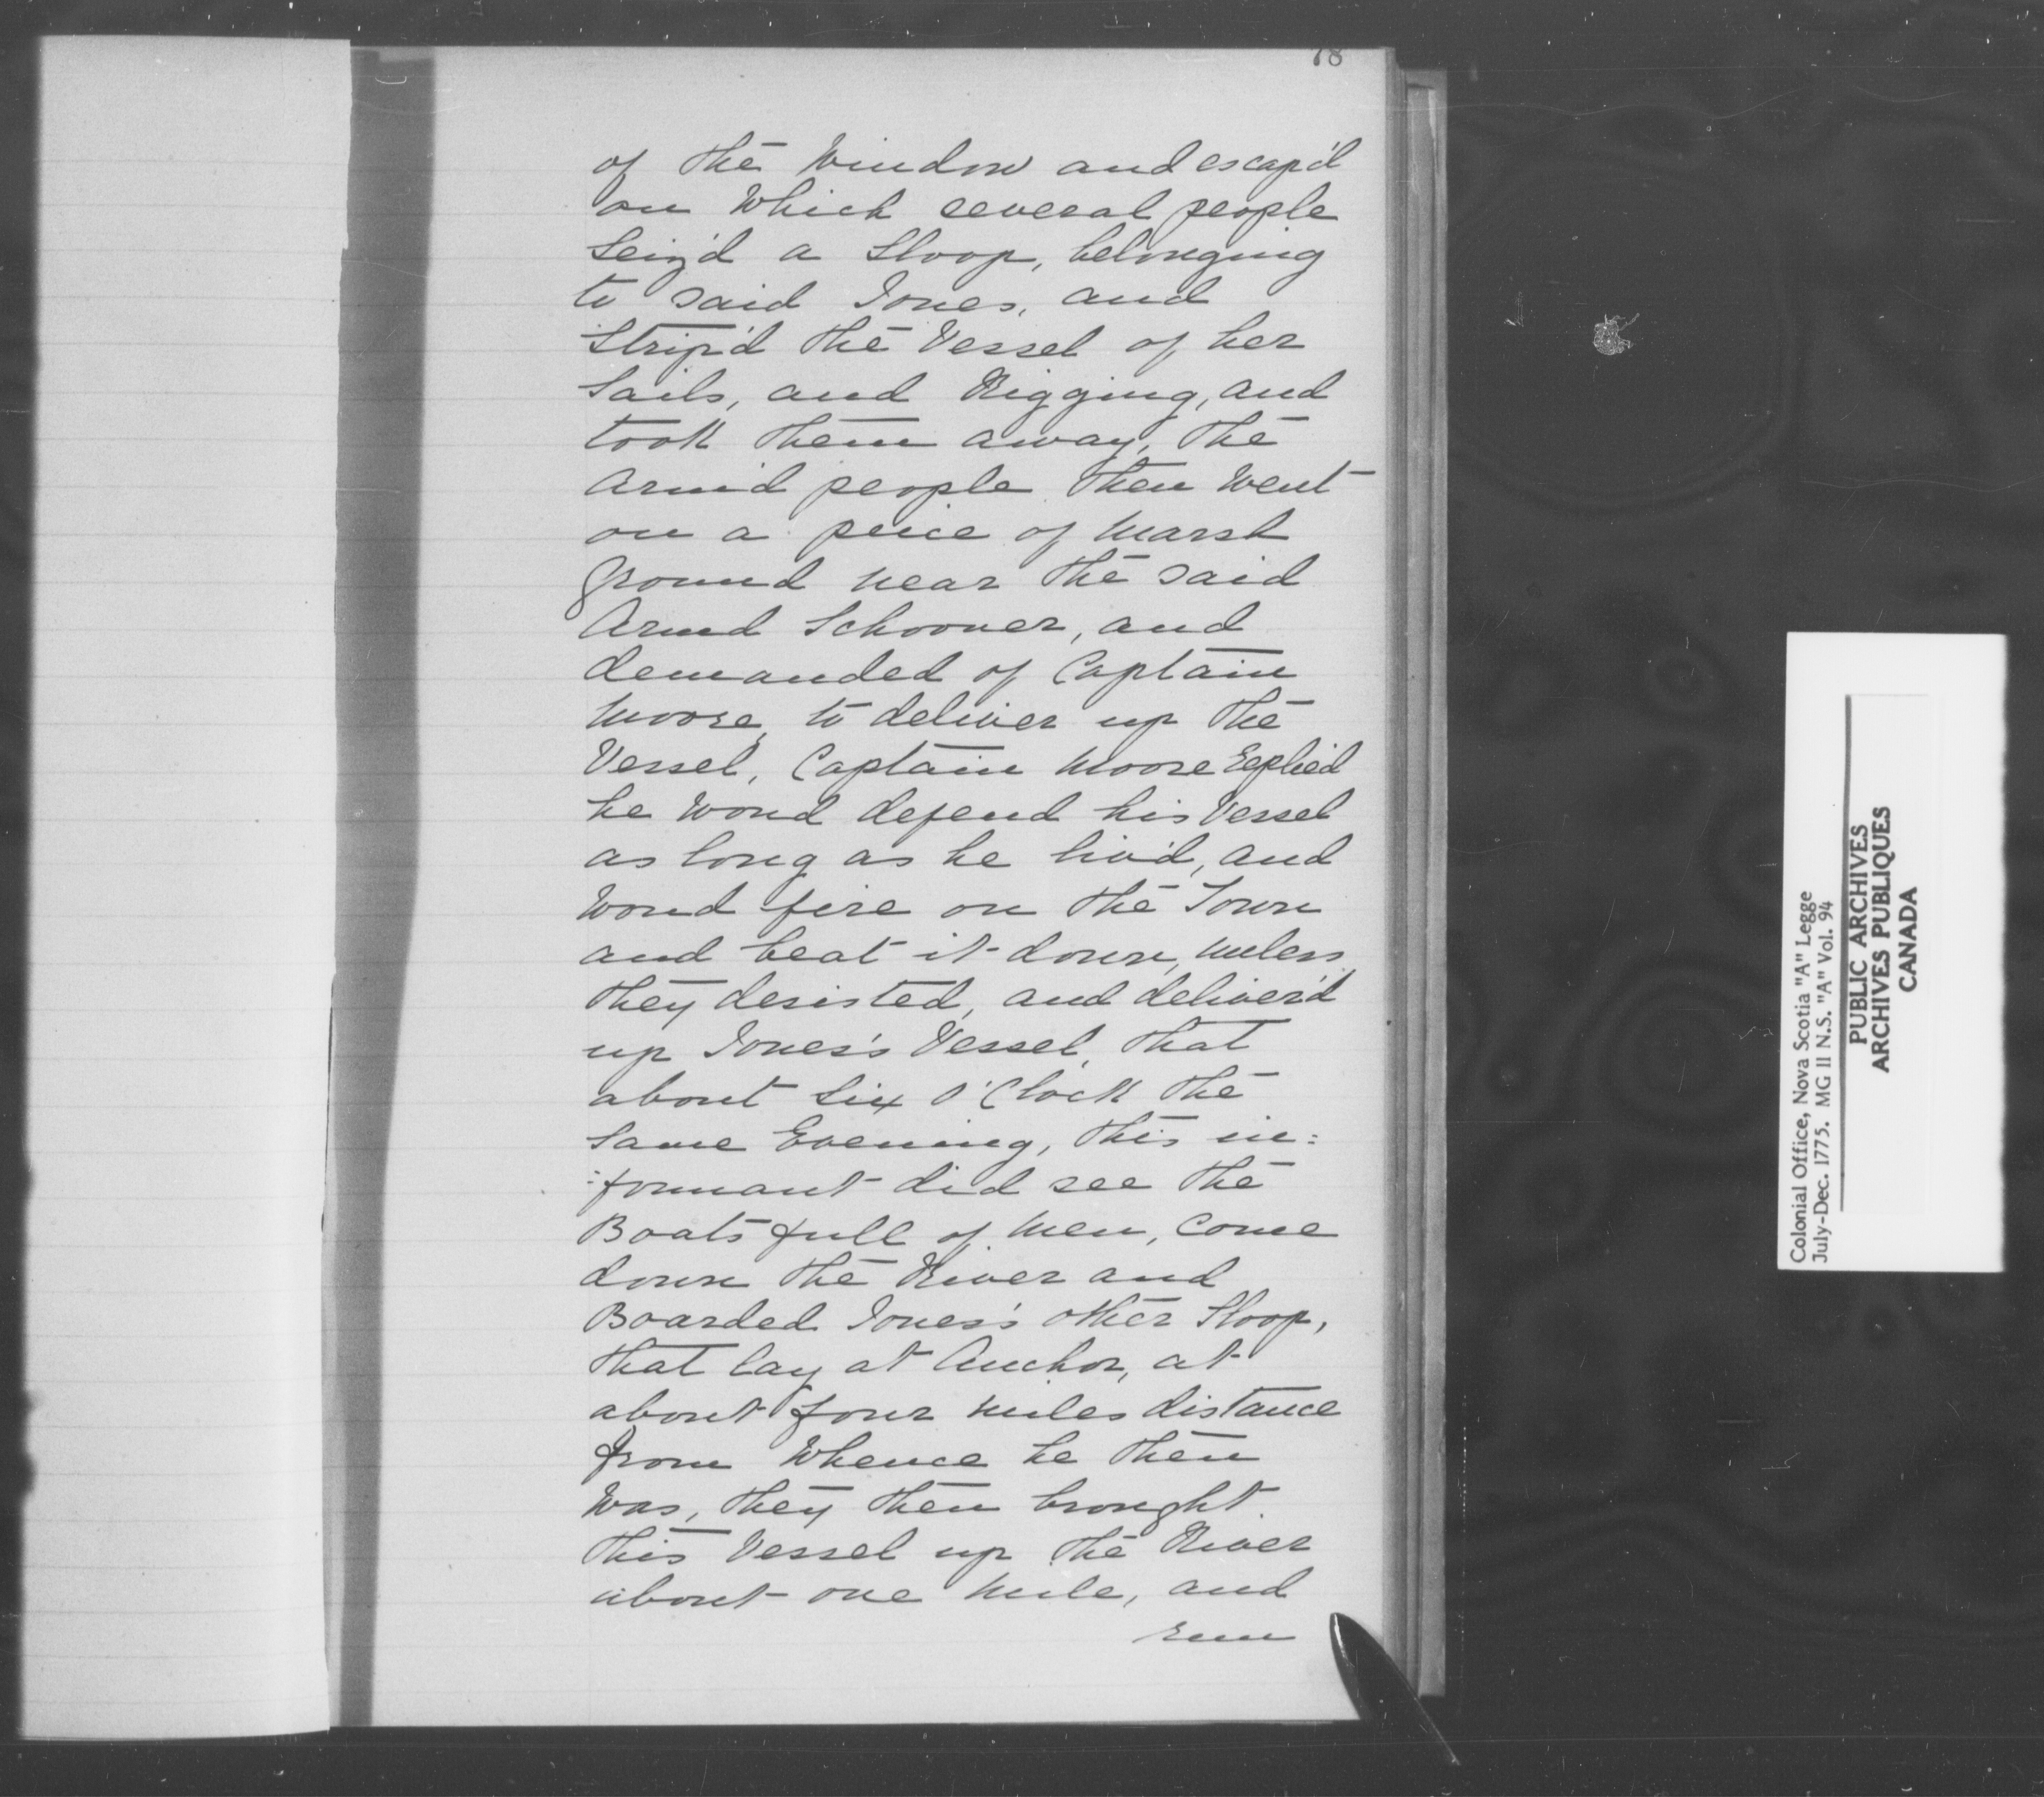 78
of the Window and escap'd
on Which several people
Seiz'd a Sloop, belonging
to said Jones, and
Strip'd the Vessel of her
Sails, and Rigging, and
took them away, the
Arm'd people then Went
on a peice of Marsh
Ground near the said
Armd Schooner, and
demanded of Captain
Moore, to deliver up the
Vessel, Captain Moore Replied
he Woud defend his Vessel
as long as he liv'd, and
Woud fire on the Town
and beat it down, unless
they desisted, and deliver'd
up Jones's Vessel, that
about Six O'Clock the
Same Evening, this in:
:formant did see the
Boats full of Men, Come
down the River and
Boarded Jones's other Sloop,
that lay at Anchor, at
about four Miles distance
from Whence he then
Was, they then brought
this Vessel up the River
about one Mile, and
run
Colonial Office, Nova Scotia "A" Legge
July-Dec. 1775. MG 11 N.S. "A" Vol. 94
PUBLIC ARCHIVES
ARCHIVES PUBLIQUES
CANADA